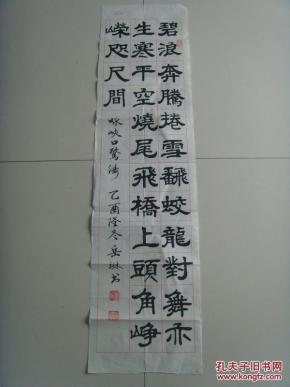 碧浪奔騰捲雪飜蛟龍對舞亦
生寒平空燒尾飛橋上頭角崢
嶸咫尺間
咏峽口驚濤 乙酉隆冬岳琳书
孔夫子旧书网